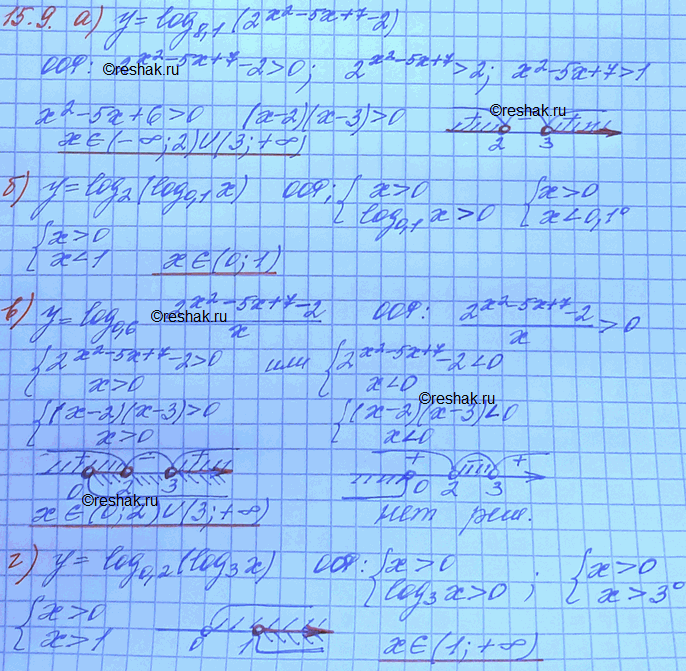 15.9. а) y = log₀,₁ (2^(x²-5x+7) - 2)
ООФ: 2^(x²-5x+7) - 2 > 0; 2^(x²-5x+7) > 2; x²-5x+7 > 1
©reshak.ru
x²-5x+6 > 0 (x-2)(x-3) > 0 + - + 2 3
©reshak.ru
x ∈ (-∞; 2) ∪ (3; +∞)
б) y = log₂ (log₀,₁ x) ООФ: { x > 0 { x > 0
log₀,₁ x > 0 x < 0,1⁰
{ x > 0
x < 1 x ∈ (0; 1)
в) y = log₀,₆ (2^(x²-5x+7) - 2)/x ООФ: (2^(x²-5x+7) - 2)/x > 0
©reshak.ru
{ 2^(x²-5x+7) - 2 > 0 или { 2^(x²-5x+7) - 2 < 0
x > 0 x < 0
©reshak.ru
{ (x-2)(x-3) > 0 { (x-2)(x-3) < 0
x > 0 x < 0
+ - + + - +
0 2 3 0 2 3
©reshak.ru
x ∈ (0; 2) ∪ (3; +∞) нет реш.
г) y = log₀,₂ (log₃ x) ООФ: { x > 0 ; { x > 0
log₃ x > 0 x > 3⁰
{ x > 0
x > 1 0 1 x ∈ (1; +∞)